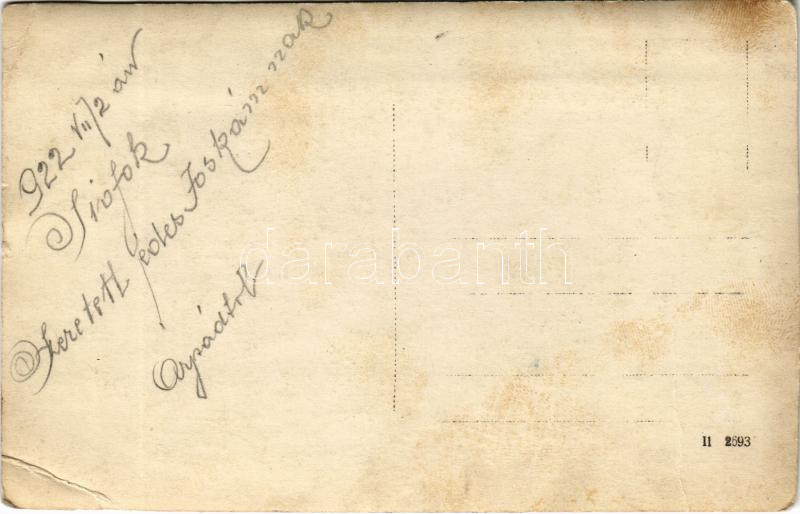 922 VII/2 án
Siófok
Szeretett édes Joskámnak
Árpádtól
darabanth
II 2693